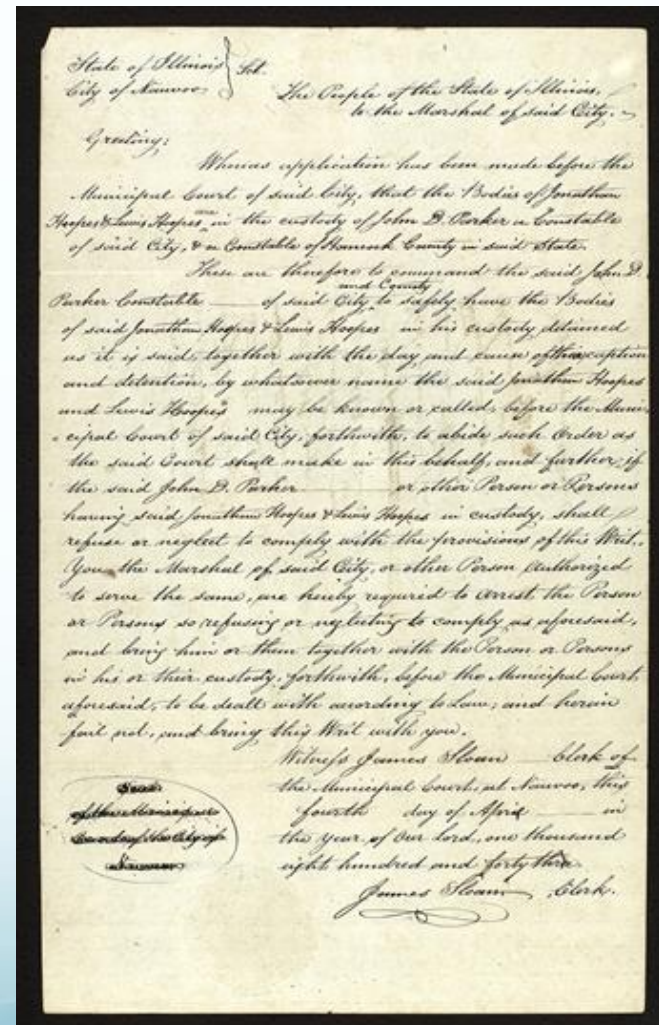 State of Illinois } Sct.
City of Nauvoo
The People of the State of Illinois,
to the Marshal of said City.
Greeting:
Whereas application has been made before the
Municipal Court of said City, that the Bodies of Jonathan
Hoopes & Lewis Hoopes are in the custody of John D. Parker a Constable
of said City, & a Constable of Hancock County in said State.
These are therefore to command the said John D.
Parker Constable of said City and County to safely have the Bodies
of said Jonathan Hoopes & Lewis Hoopes in his custody detained
as it is said, together with the day and cause of their caption
and detention, by whatsoever name the said Jonathan Hoopes
and Lewis Hoopes may be known or called, before the Muni-
cipal Court of said City, forthwith, to abide such Order as
the said Court shall make in this behalf, and further, if
the said John D. Parker or other Person or Persons
having said Jonathan Hoopes & Lewis Hoopes in custody, shall
refuse or neglect to comply with the provisions of this Writ,
You, the Marshal of said City, or other Person Authorized
to serve the same, are hereby required to arrest the Person
or Persons so refusing or neglecting to comply as aforesaid,
and bring him or them together with the Person or Persons
in his or their custody, forthwith, before the Municipal Court,
aforesaid, to be dealt with according to Law; and herein
fail not, and bring this Writ with you.
Witness James Sloan Clerk of
the Municipal Court, at Nauvoo, this
fourth day of April in
the year of Our Lord, one thousand
eight hundred and forty three.
James Sloan, Clerk.
Seal
of the Municipal
Court of the City of
Nauvoo